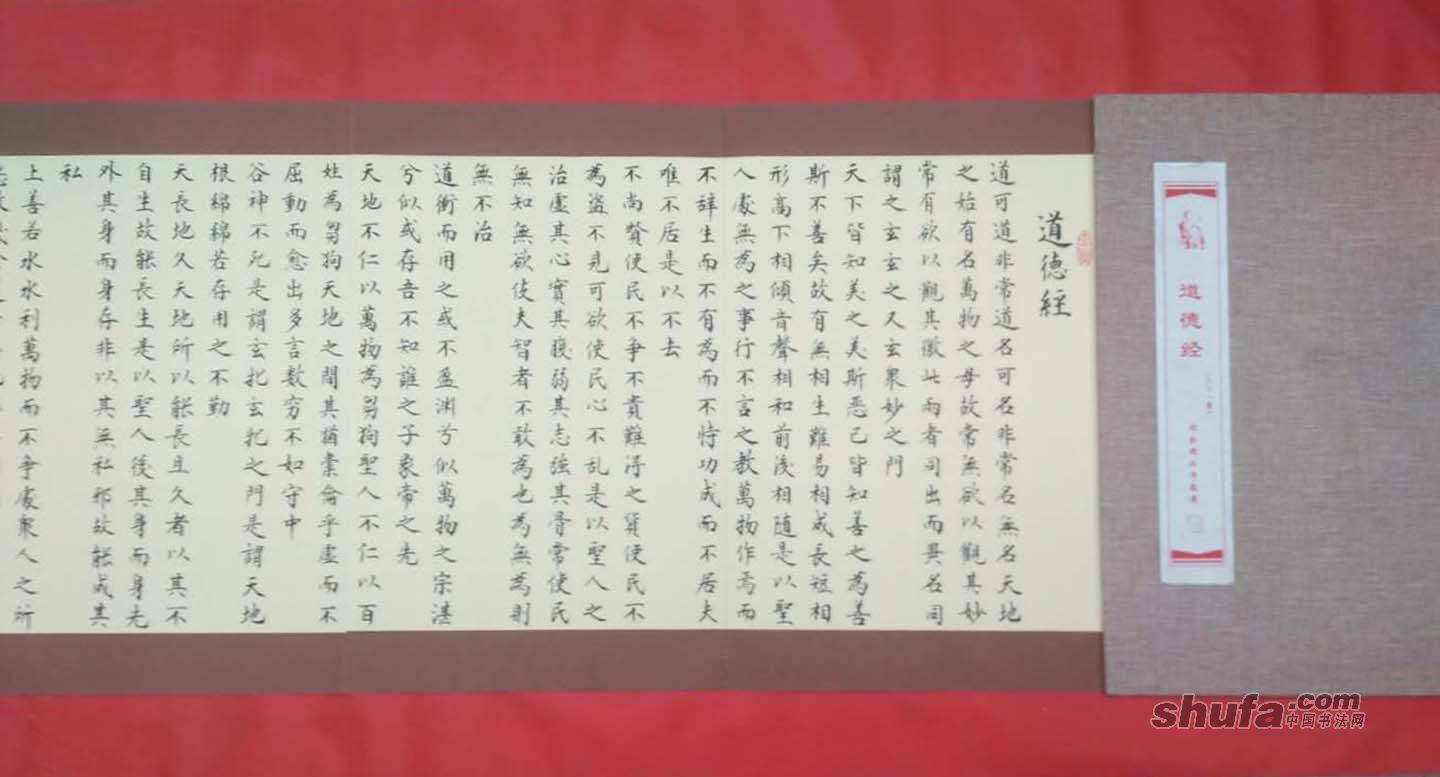 道德经
道德經
道可道非常道名可道名非常名無名天地
之始有名萬物之母故常無欲以觀其妙
常有欲以觀其徼此兩者同出而異名同
謂之玄玄之又玄衆妙之門
天下皆知美之美斯恶已皆知善之為善
斯不善矣故有無相生難易相成長短相
形高下相傾音聲相和前後相随是以聖
人處無為之事行不言之教萬物作焉而
不辞生而不有為而不恃功成而不居夫
唯不居是以不去
不尚賢使民不争不貴難得之貨使民不
為盗不見可欲使民心不乱是以聖人之
治虚其心實其腹弱其志強其骨常使民
無知無欲使夫智者不敢為也為無為則
無不治
道衝而用之或不盈渊兮似萬物之宗湛
兮似或存吾不知誰之子象帝之先
天地不仁以萬物為芻狗聖人不仁以百
姓為芻狗天地之間其猶橐龠乎虚而不
屈動而愈出多言数穷不如守中
谷神不死是謂玄牝玄牝之門是謂天地
根綿綿若存用之不勤
天長地久天地所以能長且久者以其不
自生故能長生是以聖人後其身而身先
外其身而身存非以其無私邪故能成其
私
上善若水水利萬物而不争處衆人之所
shufa.com
中国书法网